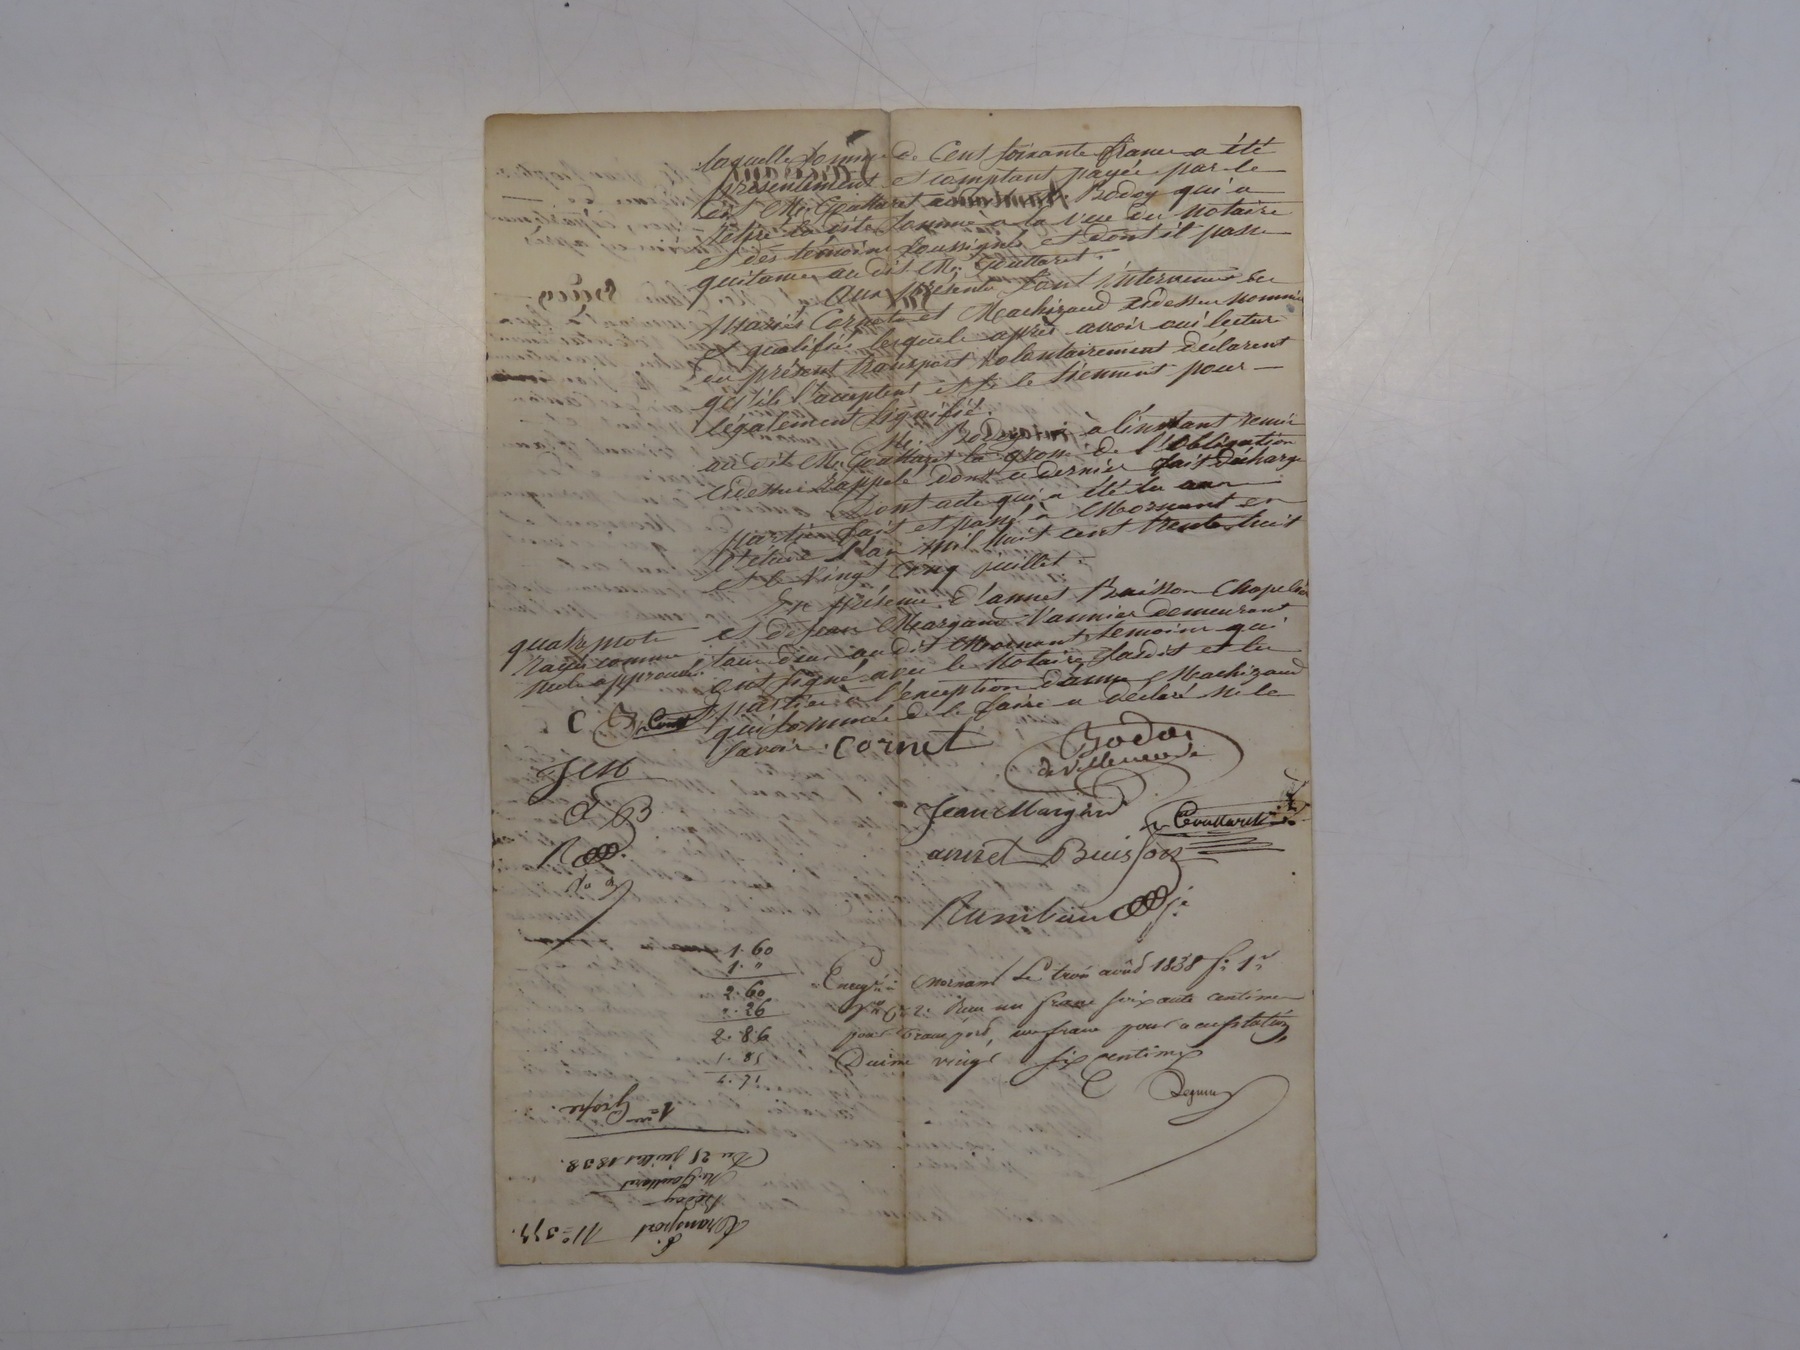 laquelle somme de Cent soixante francs a été
présentement et comptant payée par le
dit Me. Gouttaret audit Me. Bodoy qui a
retiré la dite somme à la vue du Notaire
et des témoins soussignés et dont il passe
quitance au dit Me. Gouttaret.
Aux présentes sont intervenus les
Mariés Cornet et Machizaud cidessus nommés
et qualifiés lesquels après avoir oui lecture
du présent transport volontairement déclarent
qu'ils l'acceptent et se le tiennent pour
légalement signifié.
Me. Bodoy a à l'instant remis
au dit Me. Gouttaret la grosse de l'obligation
cidessus rappelé dont ce dernier fait décharge
Dont acte qui a été lu aux
parties fait et passé à Mornant en
l'étude l'an mil huit cent trente huit
et le vingt cinq juillet.
En présence d'annet Buisson Chapelier
et de Jean Margand Vannier demeurant
tous deux au dit Mornant témoins qui
ont signé avec le Notaire Jasdit et les
parties à l'exception d'anne Machizaud
qui sommée de le faire a déclaré ne le
savoir.
quatre mots
rayés comme
nuls approuvés
Cornet
Bodoy
de villeneuve
Jean Margand
Gouttaret
annet Buisson
A B
1. 60
1. "
2. 60
". 26
2. 86
1. 85
4. 71
Enregé à Mornant Le trois août 1838 f° 1er
Reçu un franc soixante centimes
pour transport, un franc pour acceptation
Decime vingt six centimes
1ere Grosse.
Du 25 juillet 1838.
Me. Gouttaret
Bodoy
Transport